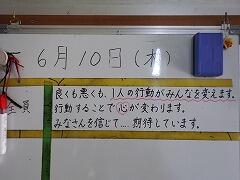 6月10日(木)
良くも悪くも、1人の行動がみんなを変えます。
行動することで心が変わります。
みなさんを信じて....期待しています。